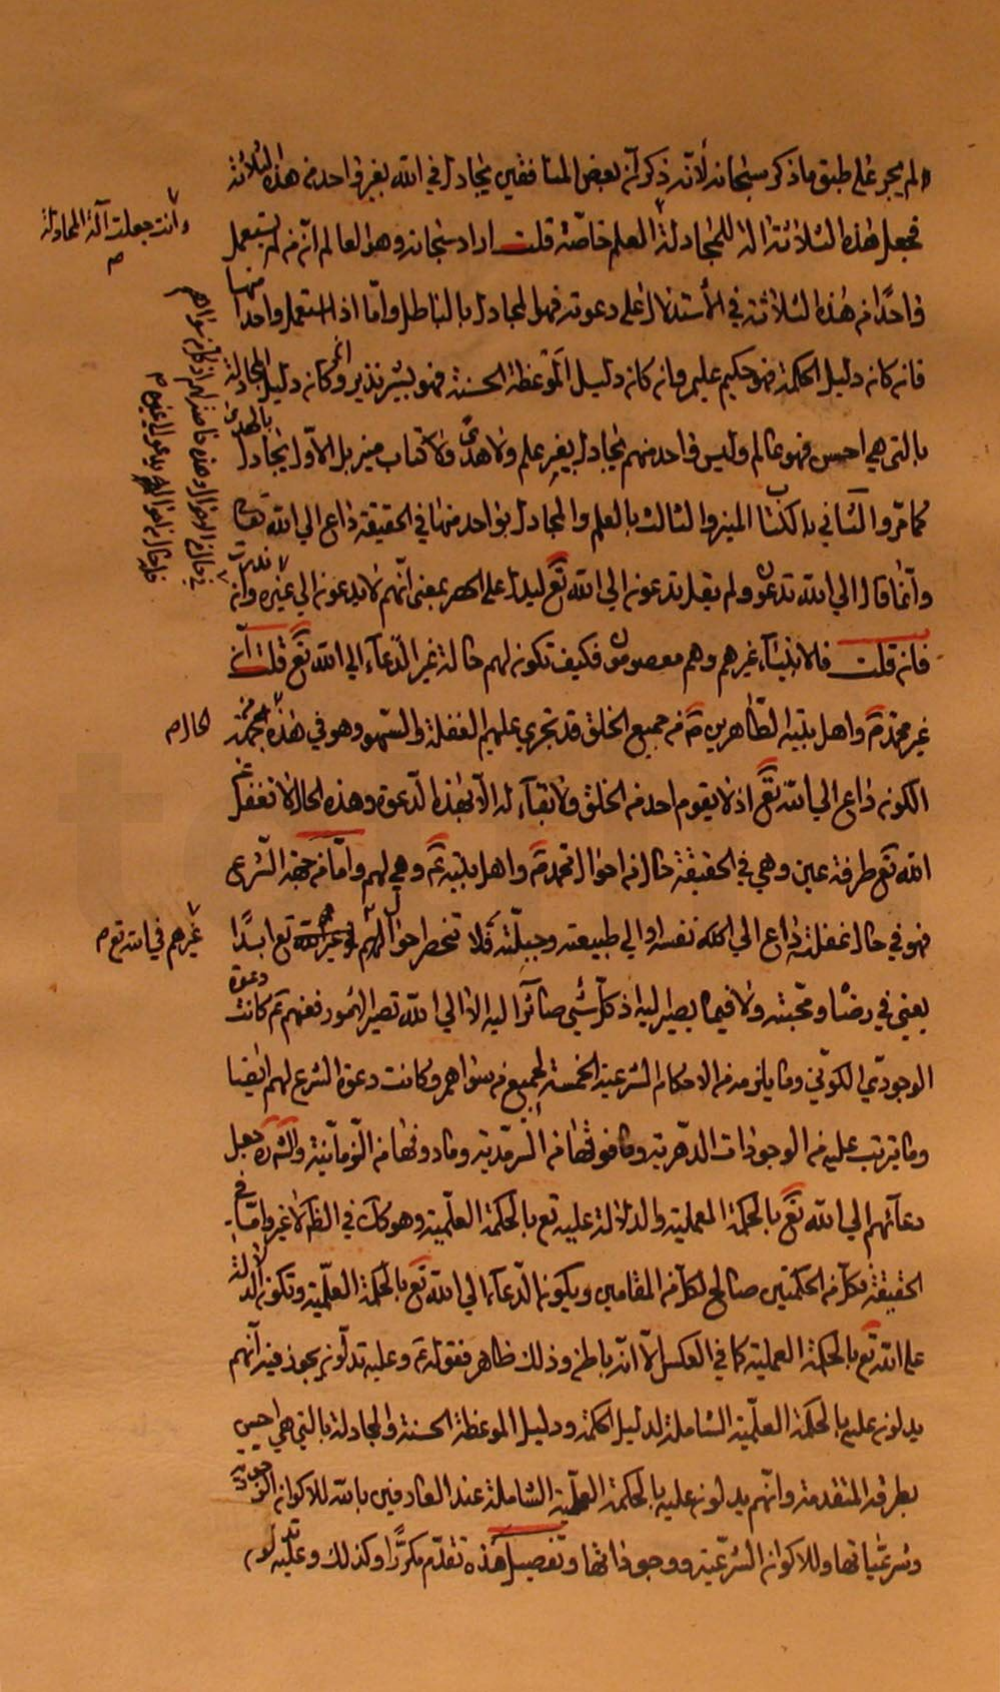 لم يجر على طبق ما ذكر سبحانه لأنه ذكر أن بعض المنافقين يجادل في الله بغير واحد من هذه الثلاثة
فجعل هذه الثلاثة آلة للمجادلة العلم خاصة قلت اراد سبحانه وهو العالم انه من لم يستعمل
واحدًا من هذه الثلاثة في الأستدلال على دعوته فهو المجادل بالباطل وامّا اذا استعمل واحدا منها
فان كان دليل الحكمة فهو حكيم عليم وان كان دليل الموعظة الحسنة فهو بشير نذير وان كان دليل المجادلة
بالتي هي احسن فهو عالم وليس واحد منهم يجادل بغير علم ولا هدى ولا كتاب منير بل الأوّل يجادل بالهدى
كما مرّ والثاني بالكتاب المنير والثالث بالعلم والمجادل بواحد منها في الحقيقة داع الى الله تعالى
وانّما قال الى الله تدعون ولم يقل تدعون الى الله تع ليدل على الحصر بمعنى انّهم لا يدعون الى غيره وان
فان قلت فالانبياء غيرهم وهم معصومون فكيف تكون لهم حالة غير الدّعاء الى الله تع قلت انّ
غير محمد ص واهل بيته الطّاهرين من جميع الخلق قد تجري عليهم الغفلة والسّهو وهو في هذه
الكون داع الى الله تع اذ لا يقوم احد من الخلق ولا بقاء له الّا بهذه الدّعوة وهذه الحال لا تغفل عن
الله تع طرفة عين وهي في الحقيقة حال من احوال محمد ص واهل بيته ع وهي لهم وامّا من جهة الشّرعي
فهو في حال غفلته داع الى نفسه او الى طبيعته وجبلّته فلا تنحصر احوالهم تع ابدًا
يعني في رضا ومحبته ولا فيما يصير اليه اذ كلّ شيء صائرًا اليه الا الى الله تصير الأمور فعنهم ع كانت دعوة
الوجودي الكوني وما يلزمه من الاحكام الشرعية الخمسة لجميع من سواهم وكانت دعوة الشرع لهم ايضا
وما يترتب عليه من الوجودات الدّهرية وما فوقها من السّرمدية وما دونها من الزّمانية جعل
دعائهم الى الله تع بالحكمة العملية والدلالة عليه تع بالحكمة العلمية وهو كك في الظّ لا غير وامّا في
الحقيقة فكلّ من الحكمتين صالح لكلّ من المقامين ويكون الدّعاء الى الله تع بالحكمة العلمية وتكون الدلالة
على الله تع بالحكمة العملية كما في العكس الّا انّه باطن وذلك ظاهر فقوله ع وعليه تدلّون يجوز فيه انّهم
يدلون عليه بالحكمة العلمية الشاملة لدليل الحكمة ودليل الموعظة الحسنة والمجادلة بالتي هي احسن
بطرقه المتقدمة وانّهم يدلون عليه بالحكمة العملية الشاملة عند العارفين بالله للاكوان الوجودية
وشرعياتها وللاكوان الشرعية ووجوداتها وتفصيل هذه تقدّم مكررًا وكذلك وعليه تدلون
وأنت جعلت آلة المجادلة
الحال م
غيرهم في الله تع م